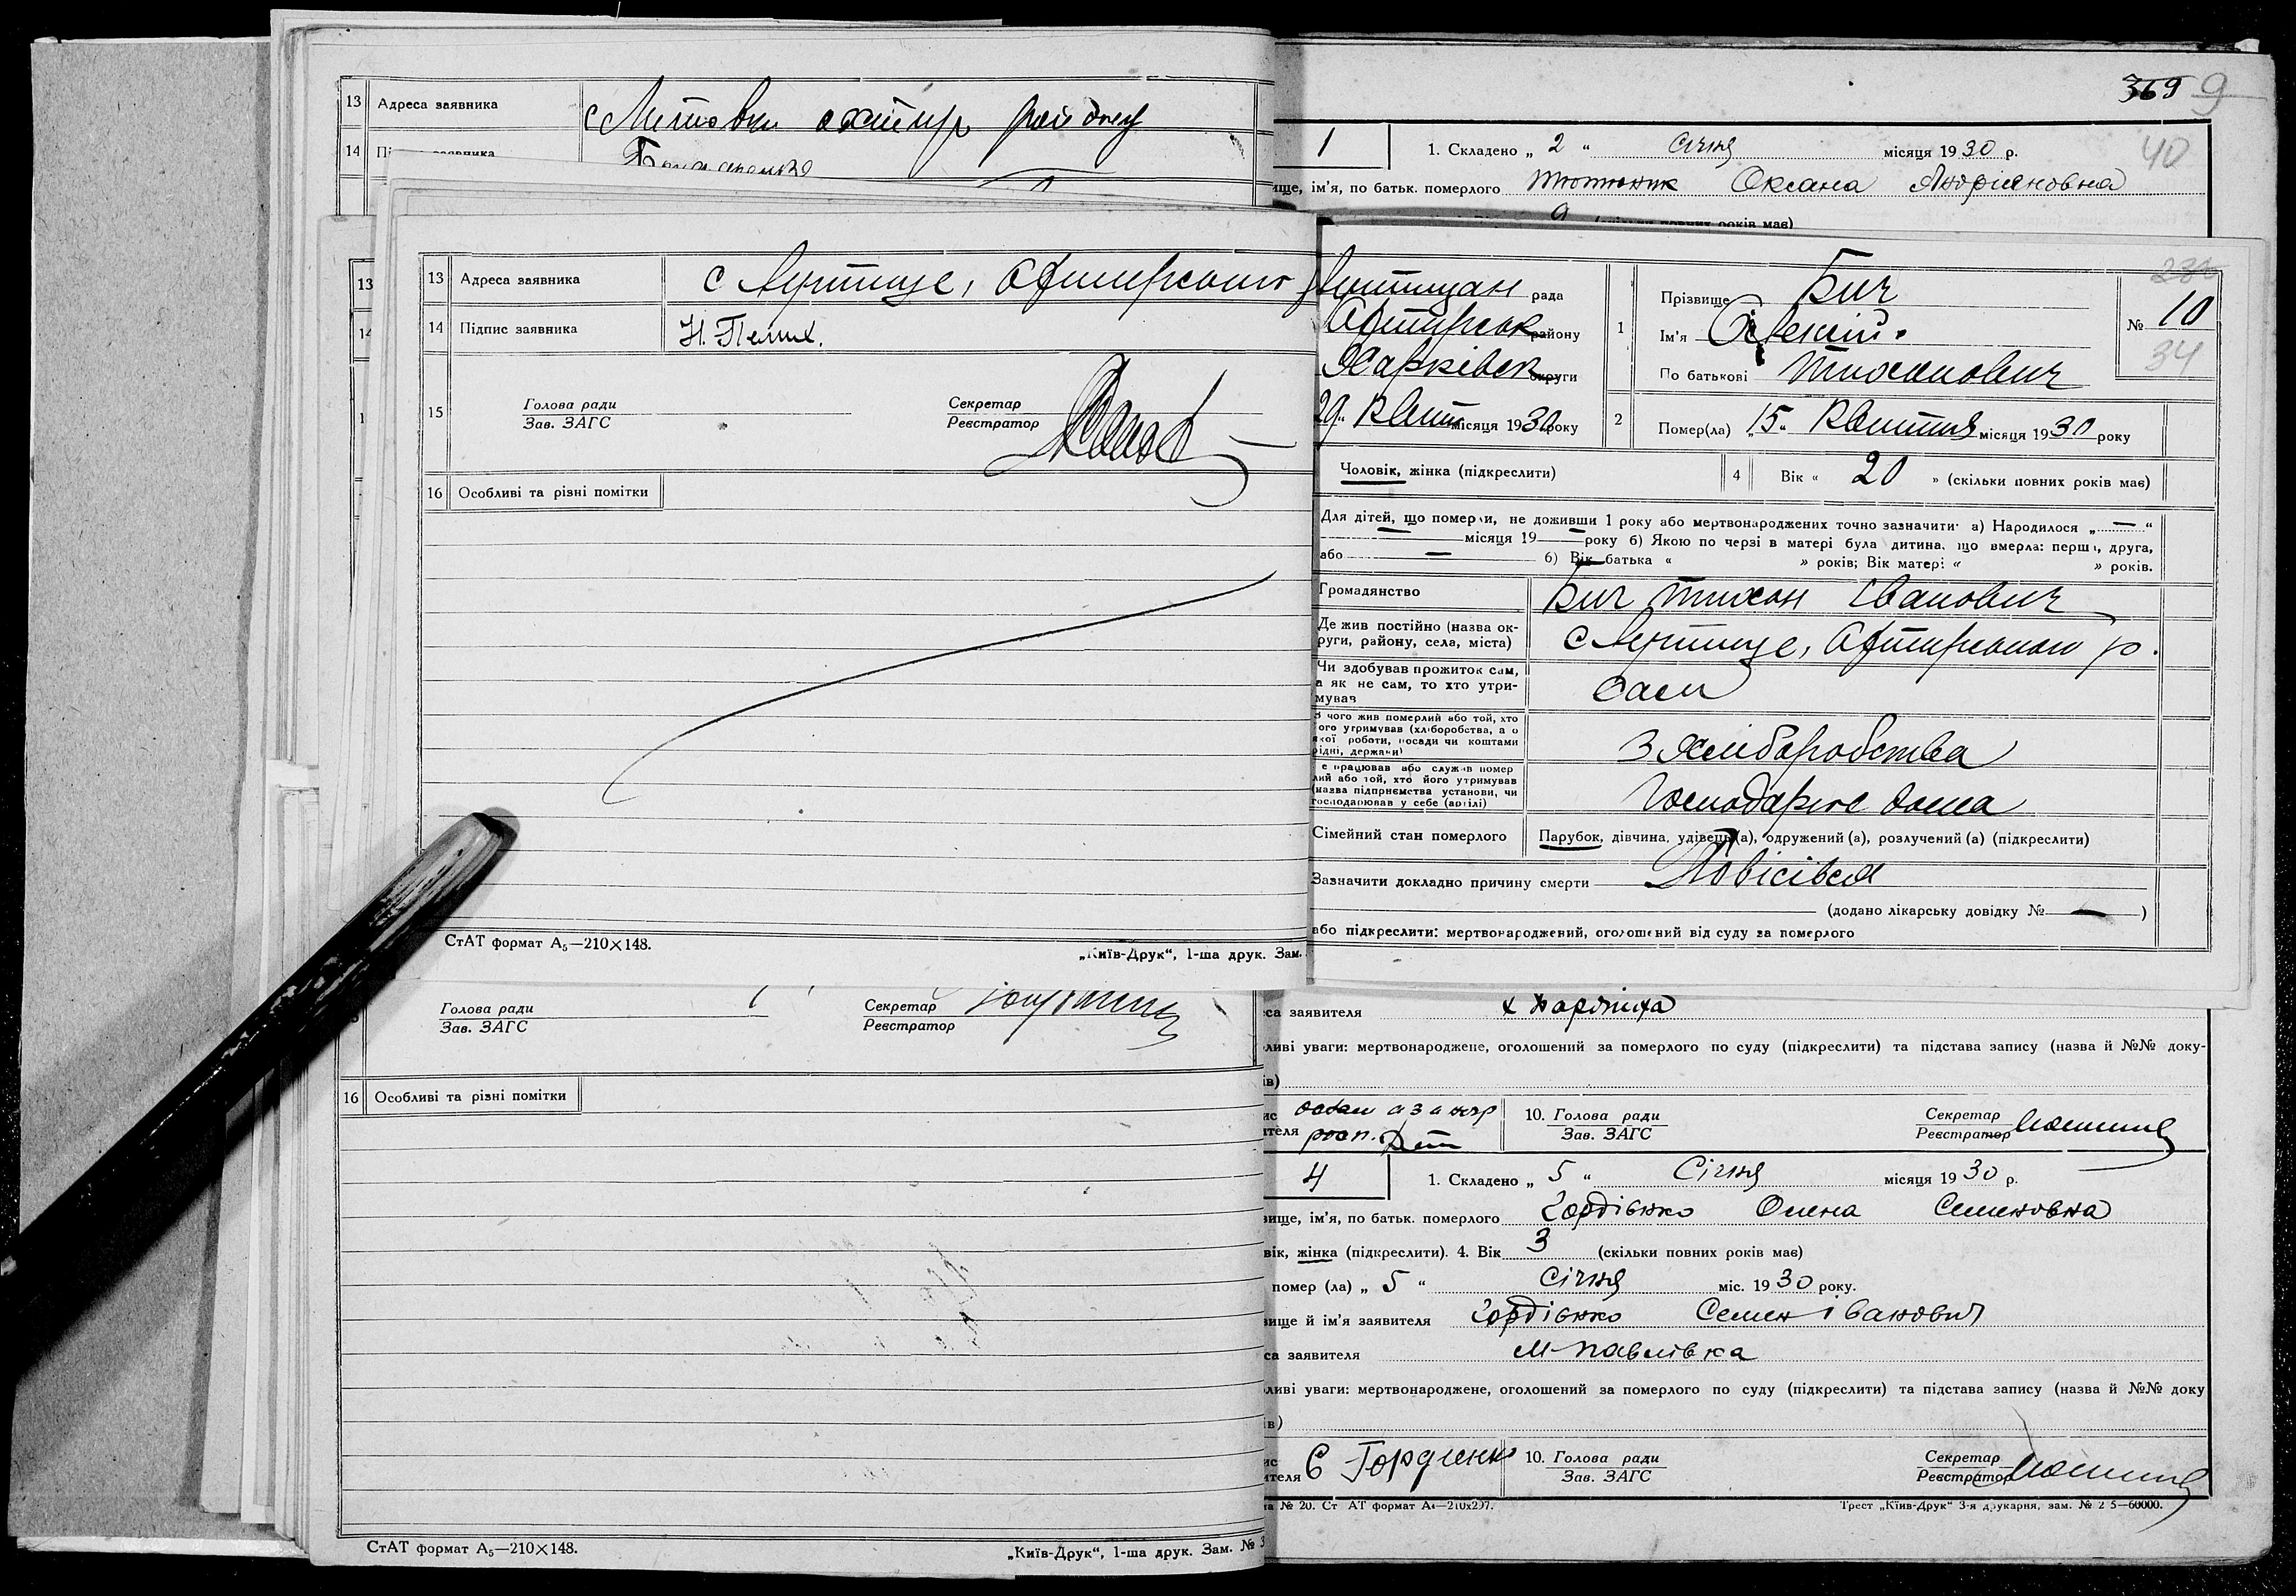 13 Адреса заявника с Литовки охтир району
14
13
14
13 Адреса заявника с Лутище, Охтирського
14 Підпис заявника Н. Пелих.
15 Голова ради
Зав. ЗАГС
Секретар
Реєстратор
16 Особливі та різні помітки
СтАТ формат А₅—210×148.
„Київ-Друк“, 1-ша друк. Зам.
Голова ради
Зав. ЗАГС
Секретар
Реєстратор
16 Особливі та різні помітки
СтАТ формат А₅—210×148.
„Київ-Друк“, 1-ша друк. Зам. №
369 9
40
1 1. Складено „ 2 “ Січня місяця 1930 р.
ище, ім'я, по батьк. померлого Тютюник Оксана Андріяновна
9 (скільки повних років має)
Лутищан рада
Охтирськ району
Харківськ округи
29 Квітн місяця 1930 року
232
1 Прізвище Бич
Ім'я Олексій
По батькові Тихонович
№ 10
34
2 Помер(ла) „15“ Квитня місяця 1930 року
Чоловік, жінка (підкреслити)
4 Вік « 20 » (скільки повних років має)
Для дітей, що померли, не доживши 1 року або мертвонароджених точно зазначити: а) Народилося „ — “
— місяця 19 — року б) Якою по черзі в матері була дитина, що вмерла: перша, друга,
або — 6) Вік батька « » років; Вік матері « » років.
Громадянство Бич Тихон Іванович
Де жив постійно (назва округи, району, села, міста) с Лутище, Охтирського р.
Чи здобував прожиток сам, а як не сам, то хто утримував Сам
З чого жив померлий або той, хто його утримував (хліборобства, а о якої роботи, посади чи коштами рідні, держави) З Хліборобства
Де працював або служив померлий або той, хто його утримував (назва підприємства установи, чи господарював у себе (артілі) Господарює дома
Сімейний стан померлого Парубок, дівчина, удівець(а), одружений (а), розлучений (а) (підкреслити)
Зазначити докладно причину смерти Повісівся
(додано лікарську довідку № — )
або підкреслити: мертвонароджений, оголошений від суду за померлого
са заявителя
ливі уваги: мертвонароджене, оголошений за померлого по суду (підкреслити) та підстава запису (назва й №№ доку-
ів)
ис
ителя
10. Голова ради
Зав. ЗАГС
Секретар
Реєстратор
4 1. Складено „ 5 “ Січня місяця 1930 р.
вище, ім'я, по батьк. померлого Гордієнко Олена Семеновна
вік, жінка (підкреслити). 4. Вік 3 (скільки повних років має)
помер (ла) „ 5 “ Січня міс. 1930 року.
вище й ім'я заявителя Гордієнко Семен Іванович
са заявителя М-Павлівка
ливі уваги: мертвонароджене, оголошений за померлого по суду (підкреслити) та підстава запису (назва й №№ доку
ів)
ис
ителя Є Гордиенк
10. Голова ради
Зав. ЗАГС
Секретар
Реєстратор
№ 20. Ст АТ формат А₄—210х297.
Трест „Київ-Друк“ 3-я друкарня, зам. № 2 5—60000.